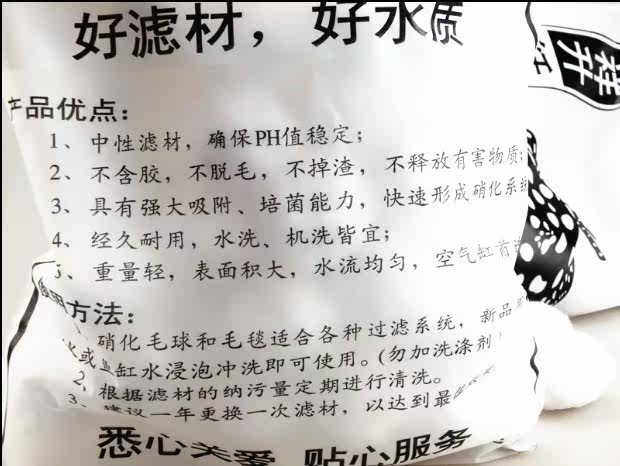 好滤材，好水质
产品优点：
1、中性滤材，确保PH值稳定；
2、不含胶，不脱毛，不掉渣，不释放有害物质；
3、具有强大吸附、培菌能力，快速形成硝化系统
4、经久耐用，水洗、机洗皆宜；
5、重量轻，表面积大，水流均匀，空气缸首选
使用方法：
、硝化毛球和毛毯适合各种过滤系统，新品用
水或鱼缸水浸泡冲洗即可使用。(勿加洗涤剂)
2、根据滤材的纳污量定期进行清洗。
3、建议一年更换一次滤材，以达到最
悉心关爱 贴心服务
祥升
红